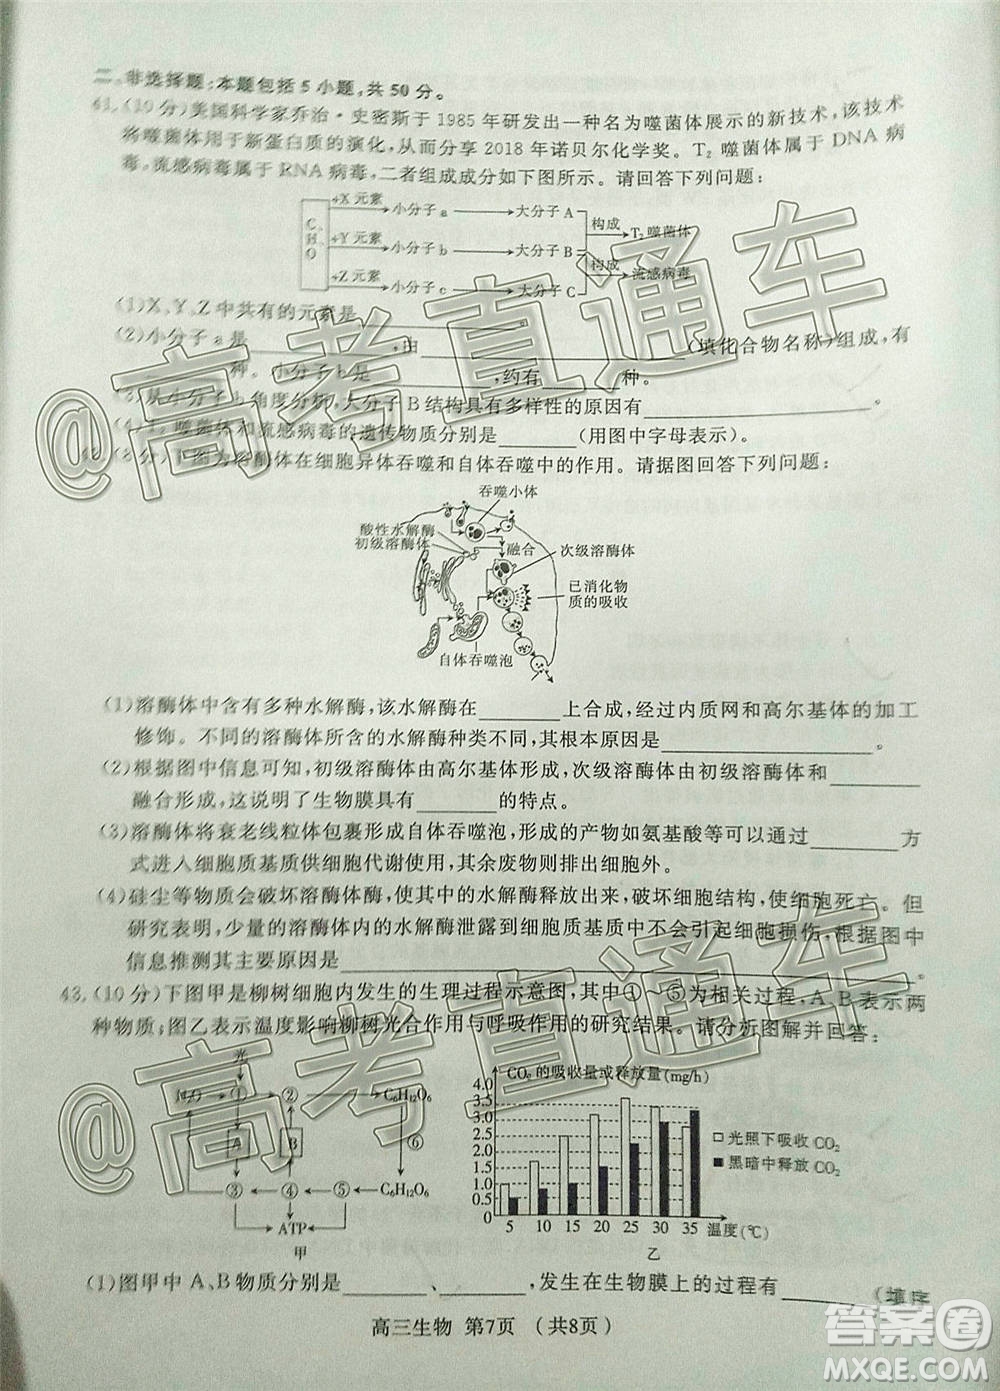 二、非选择题:本题包括5小题,共50分。
41.(10分)美国科学家乔治·史密斯于1985年研发出一种名为噬菌体展示的新技术,该技术
将噬菌体用于新蛋白质的演化,从而分享2018年诺贝尔化学奖。T₂噬菌体属于DNA病
毒,流感病毒属于RNA病毒,二者组成成分如下图所示。请回答下列问题:
C、H、O
+X元素 小分子a 大分子A 构成 T₂噬菌体
+Y元素 小分子b 大分子B 构成 流感病毒
+Z元素 小分子c 大分子C
(1)X、Y、Z中共有的元素是
(2)小分子a是______,由______(填化合物名称)组成,有
______种。小分子b是______,约有______种。
(3)从小分子b角度分析,大分子B结构具有多样性的原因有______。
(4)T₂噬菌体和流感病毒的遗传物质分别是______(用图中字母表示)。
42.(8分)下图为溶酶体在细胞异体吞噬和自体吞噬中的作用。请据图回答下列问题:
吞噬小体
酸性水解酶
初级溶酶体
融合
次级溶酶体
已消化物
质的吸收
自体吞噬泡
(1)溶酶体中含有多种水解酶,该水解酶在______上合成,经过内质网和高尔基体的加工
修饰。不同的溶酶体所含的水解酶种类不同,其根本原因是______。
(2)根据图中信息可知,初级溶酶体由高尔基体形成,次级溶酶体由初级溶酶体和______
融合形成,这说明了生物膜具有______的特点。
(3)溶酶体将衰老线粒体包裹形成自体吞噬泡,形成的产物如氨基酸等可以通过______方
式进入细胞质基质供细胞代谢使用,其余废物则排出细胞外。
(4)硅尘等物质会破坏溶酶体酶,使其中的水解酶释放出来,破坏细胞结构,使细胞死亡。但
研究表明,少量的溶酶体中的水解酶泄露到细胞质基质中不会引起细胞损伤,根据图中
信息推测其主要原因是______。
43.(10分)下图甲是柳树细胞内发生的生理过程示意图,其中①~⑤为相关过程,A、B表示两
种物质;图乙表示温度影响柳树光合作用与呼吸作用的研究结果。请分析图解并回答:
光
① ② C₆H₁₂O₆
A B ⑥
③ ④ ⑤ C₆H₁₂O₆
ATP
甲
CO₂的吸收量或释放量(mg/h)
4.0
3.5
3.0
2.5
2.0
1.5
1.0
0.5
0
5 10 15 20 25 30 35 温度(℃)
光照下吸收CO₂
黑暗中释放CO₂
乙
(1)图甲中A、B物质分别是______、______,发生在生物膜上的过程有______(填序
高三生物 第7页 (共8页)
@高考直通车
@高考直通车
答案圈
MXQE.COM